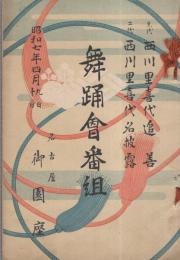 初代 西川里喜代追善
二代 西川里喜代名披露
舞踊會番組
昭和七年四月九日
名古屋 御園座